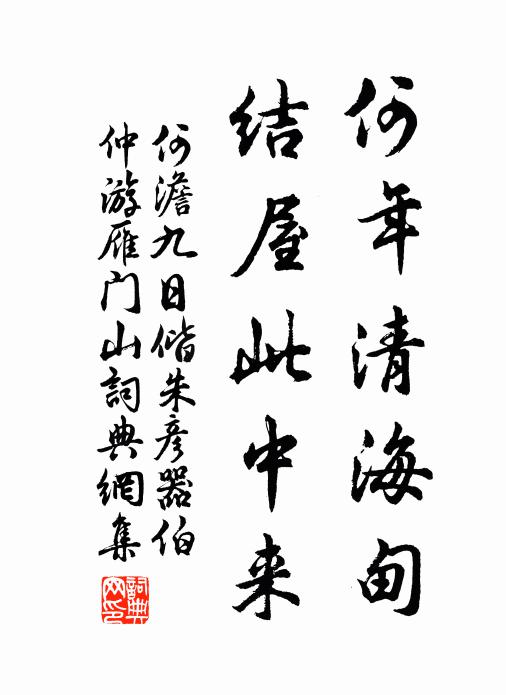 何年清海甸
结屋此中来
何澹九日偕朱彦器伯
仲游雁门山詞典網集
詞典
网印